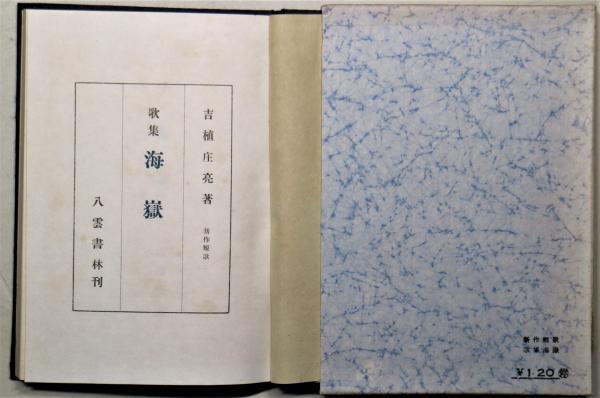 吉植庄亮著
新作短歌
歌集 海嶽
八雲書林刊
新作短歌
歌集海嶽
¥1.20